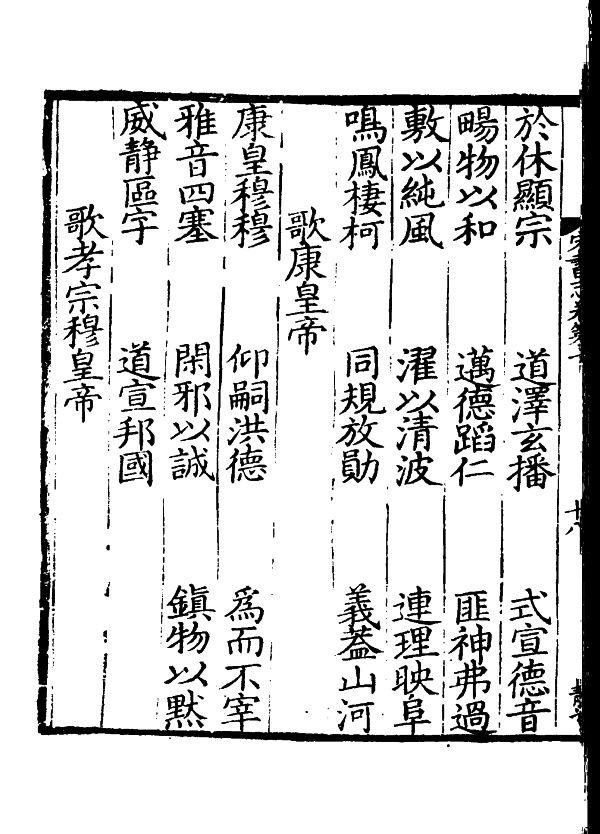 於休顯宗　道澤玄播　式宣德音
暢物以和　邁德蹈仁　匪神弗過
敷以純風　濯以清波　連理映阜
鳴鳳棲柯　同規放勛　義葢山河
歌康皇帝
康皇穆穆　仰嗣洪德　為而不宰
雅音四塞　閑邪以誠　鎮物以黙
威静區宇　道宣邦國
歌孝宗穆皇帝